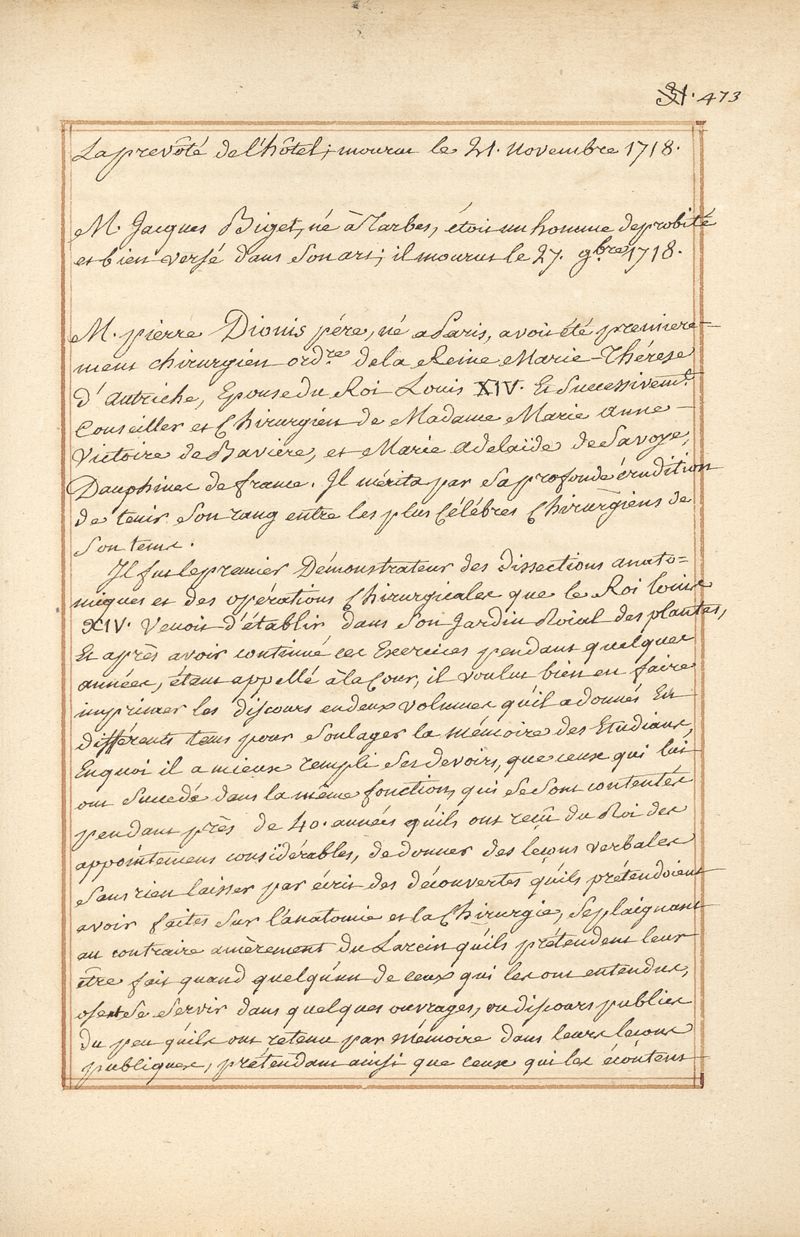 473
La prevôté de l'hôtel; mourut le 21. Novembre 1718.
M. Jacques Biget, né à Tarbes, étoit un homme de probité
et bien versé dans son art; il mourut le 27. 9bre 1718.
M. pierre Dionis pére, né a Paris, avoit été premiere-
ment chirurgien ordre de la Reine Marie-Thérese
d'autriche, Epouse du Roi Louis XIV. Et Successivemt.
Conseiller et Chirurgien de Madame Marie anne-
Victoire de Baviere, et Marie adelaïde de Savoye,
Dauphines de france. Il mérita par Sa profonde érudition
de tenir Son rang entre les plus Célébres Chirurgiens de
Son tems.
Il fut le premier Démonstrateur des dissections anato=
miques et des opérations Chirurgicales que le Roi louis
XIV. Venoit d'établir dans Son Jardin Roial des plantes,
Et après avoir continué ces Exercices pendant quelques
années, étant appellé à la Cour, il voulut bien en faire
imprimer les discours en deux volumes qu'il a donnés En
différents tems pour Soulager la mémoire des Etudians,
Enquoi il a mieux rempli Ses devoirs, que ceux qui lui
ont Succedé dans la même fonction, qui Se Sont contentés
pendant près de 40. années qu'ils ont reçû du Roi des
appointemens considérables, de donner des leçons verbales
Sans rien laisser par écrit des découvertes qu'ils prétendoient
avoir faites Sur l'anatomie et la Chirurgie, Se plaignant
au contraire amèrement du Larcin qu'ils prétendent leur
être fait quand quelqu'un de ceux qui les ont entendus,
ose Se Servir dans quelques ouvrages, ou discours publics
du peu qu'ils ont retenu par mémoire dans leurs leçons
publiques, prétendant ainsi que ceux qui les écoutent